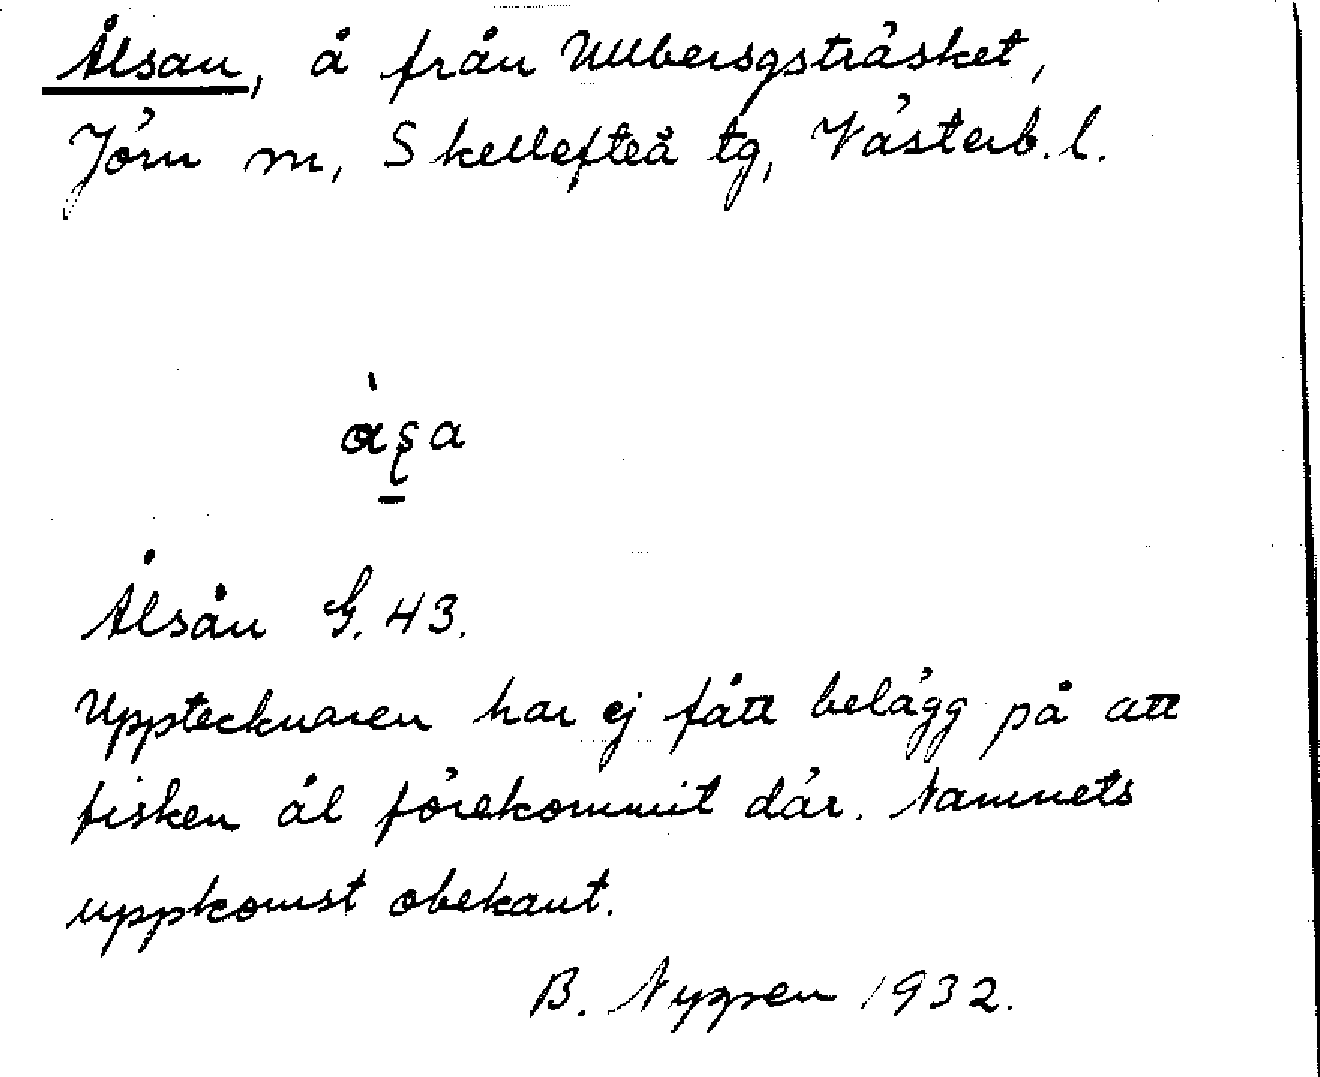 Ålsan, å från Ullbersgsträsket,
Jörn sn, Skellefteå tg, Västerb. l.
Ålsån G. 43.
Upptecknaren har ej fått belägg på att
fisken ål förekommit där. Namnets
uppkomst obekant.
B. Nygren 1932.